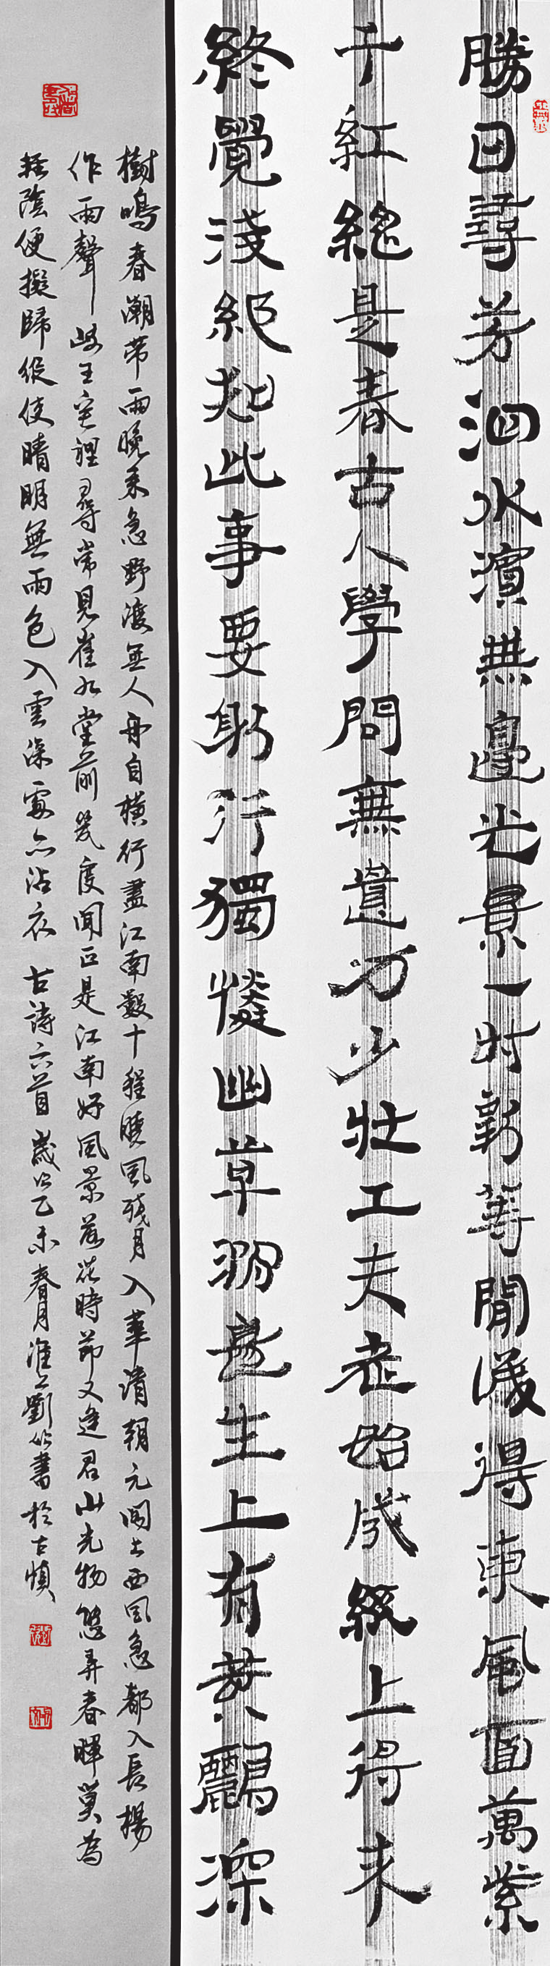 勝日尋芳泗水濱無邊光景一時新等閒識得東風面萬紫
千紅總是春古人學問無遺力少壯工夫老始成紙上得來
終覺淺絕知此事要躬行獨憐幽草澗邊生上有黃鸝深
樹鳴春潮帶雨晚來急野渡無人舟自橫行盡江南數十程曉風殘月入華清朝元閣上西風急都入長楊
作雨聲岐王宅裡尋常見崔九堂前幾度聞正是江南好風景落花時節又逢君山光物態弄春暉莫為
輕陰便擬歸縱使晴明無雨色入雲深處亦沾衣 古詩六首歲次乙未春月淮上劉書於古慎